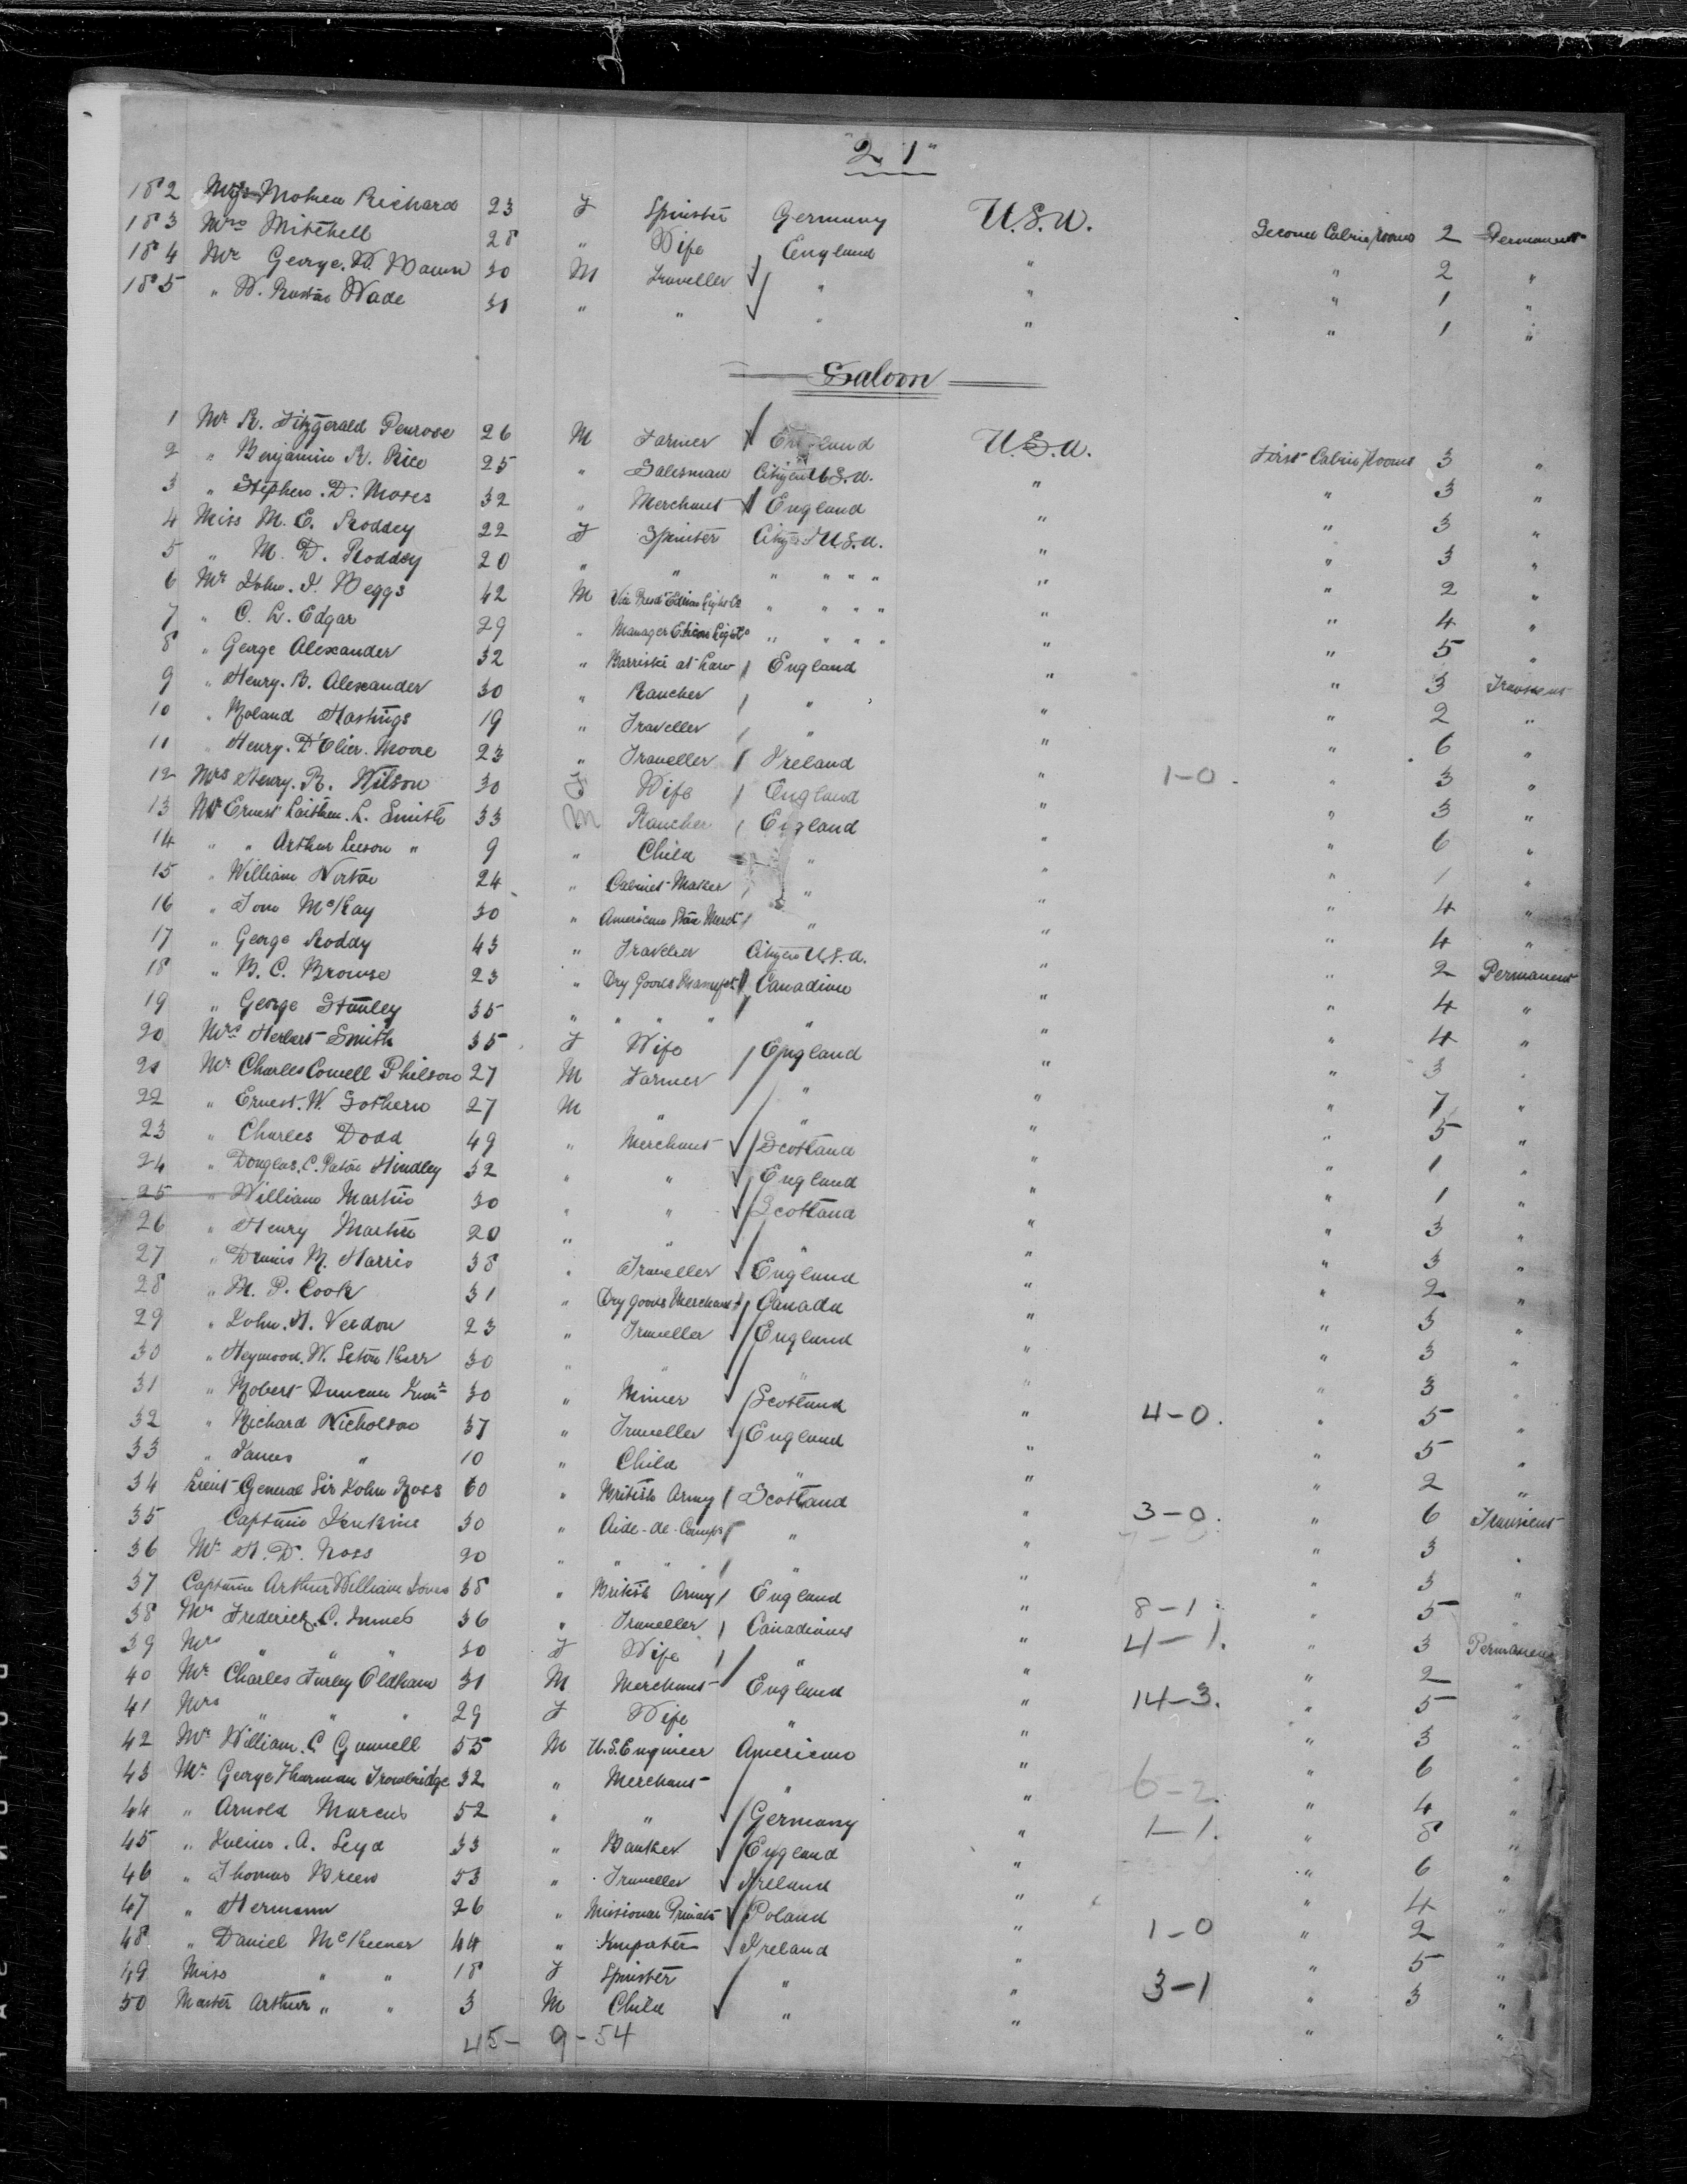 21
182 Motien Richard 23 F Spinster Germany U.S.A. Second Cabin/Rooms 2 Permanent
183 Mrs Mitchell 28 " Wife England " " 2 "
184 Mr George. W. 30 M Traveller " " " 1 "
185 " W. Wade 31 " " " " " 1 "
Saloon
1 Mr R. Fitzgerald Penrose 26 M Farmer England U.S.A. First Cabin/Rooms 3 "
2 " Benjamin R. Rice 25 " Salesman Citizen U.S.A. " " 3 "
3 " Stephen. D. Moses 32 " Merchant England " " 3 "
4 Miss M. E. Roddey 22 F Spinster Citizen U.S.A. " " 3 "
5 " M. D. Roddey 20 " " " " " " " " 2 "
6 Mr John. I. Beggs 42 M Vice Presdt Edison Light Co " " " " " " 4 "
7 " C. L. Edgar 29 " Manager Edison Light Co " " " " " " 5 "
8 " George Alexander 32 " Barrister at Law England " " 3 Transient
9 " Henry. B. Alexander 30 " Rancher " " " 2 "
10 " Roland Hastings 19 " Traveller " " " 6 "
11 " Henry. D'Olier. Moore 23 " Traveller Ireland " 1-0. " 3 "
12 Mrs Henry. R. Wilson 30 F Wife England " " 3 "
13 Mr Ernest L. Smith 33 M Rancher England " " 6 "
14 " " Arthur Leeson " 9 " Child " " " 1 "
15 " William Norton 24 " Cabinet-Maker " " " 4 "
16 " Tom McKay 30 " American Mercht " " " 4 "
17 " George Roddy 43 " Traveller Citizen U.S.A. " " 2 Permanent
18 " B. C. Browse 23 " Dry Goods Canadian " " 4 "
19 " George Stanley 35 " " " " " " " 4 "
20 Mrs Herbert Smith 35 F Wife England " " 3 "
21 Mr Charles Cowell Philson 27 M Farmer " " " 7 "
22 " Ernest. W. Sothern 27 M " " " " 5 "
23 " Charles Dodd 49 " Merchant Scotland " " 1 "
24 " Douglas. C. Paton Hindley 32 " " England " " 1 "
25 " William Martin 30 " " Scotland " " 3 "
26 " Henry Martin 20 " " " " " 3 "
27 " Dennis M. Harris 38 " Traveller England " " 2 "
28 " M. P. Cook 31 " Dry goods Merchant Canada " " 3 "
29 " John. H. Verdon 23 " Traveller England " " 3 "
30 " Heywood. W. Seton Karr 30 " " " " " 3 "
31 " Robert Duncan Junr 30 " Miner Scotland " 4-0. " 5 "
32 " Richard Nicholson 37 " Traveller England " " 5 "
33 " James " 10 " Child " " " 2 "
34 Lieut-General Sir John Ross 60 " British Army Scotland " 3-0. " 6 Transient
35 Captain 30 " Aide-de-Camps " " " 3 "
36 Mr H. D. Ross 20 " " " " " " " 3 "
37 Captain Arthur William Jones 38 " British Army England " 8-1. " 5 "
38 Mr Frederick. C. Innes 36 " Traveller Canadians " 4-1. " 3 Permanent
39 Mrs " " " 30 F Wife " " " 2 "
40 Mr Charles Furley Oldham 31 M Merchant England " 14-3. " 5 "
41 Mrs " " " 29 F Wife " " " 3 "
42 Mr William. C Gunnell 55 M U.S. Engineer American " " 6 "
43 Mr George Harman Trowbridge 32 " Merchant " " 6-2. " 4 "
44 " Arnold Marcus 52 " " Germany " 1-1. " 8 "
45 " Julius. A. Leyd 33 " Banker England " " 6 "
46 " Thomas Breen 53 " Traveller Ireland " " 4 "
47 " Hermann 26 " Poland " 1-0 " 2 "
48 " Daniel McKeever 44 " Ireland " " 5 "
49 Miss " " 18 F Spinster " " 3-1 " 3 "
50 Master Arthur " " 3 M Child " " " "
45- 9-54